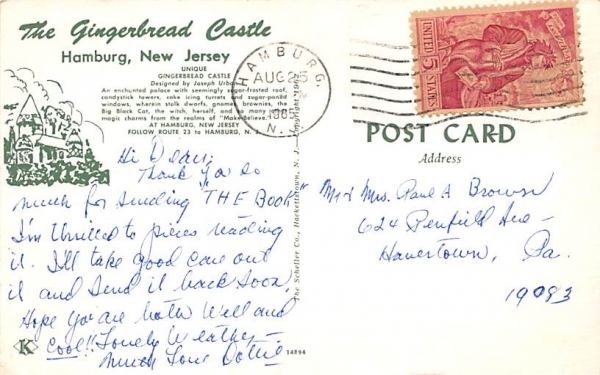 The Gingerbread Castle
Hamburg, New Jersey
UNIQUE
GINGERBREAD CASTLE
Designed by Joseph Urban
An enchanted palace with seemingly sugar-frosted roof,
candystick towers, cake icing turrets and sugar-paned
windows, wherein stalk dwarfs, gnomes, brownies, the
Big Black Cat, the witch, herself, and so many
magic charms from the realms of "Make-Believe."
AT HAMBURG, NEW JERSEY
FOLLOW ROUTE 23 to HAMBURG, N. J.
Hi Dear,
Thank You so
much for sending "THE BOOK"
I'm thrilled to pieces reading
it. I'll take good care out
it and send it back soon,
Hope you are both Well and
Cool!! Lovely Weather –
Much Love Dottie
K
14894
The Scheller Co., Hackettstown, N. J. – Copyright
HAMBURG.
AUG 25
1965
N.J.
UNITED STATES
5c
POST CARD
Address
Mr & Mrs. Paul A Brown
624 Penfield Ave –
Havertown, Pa.
19083